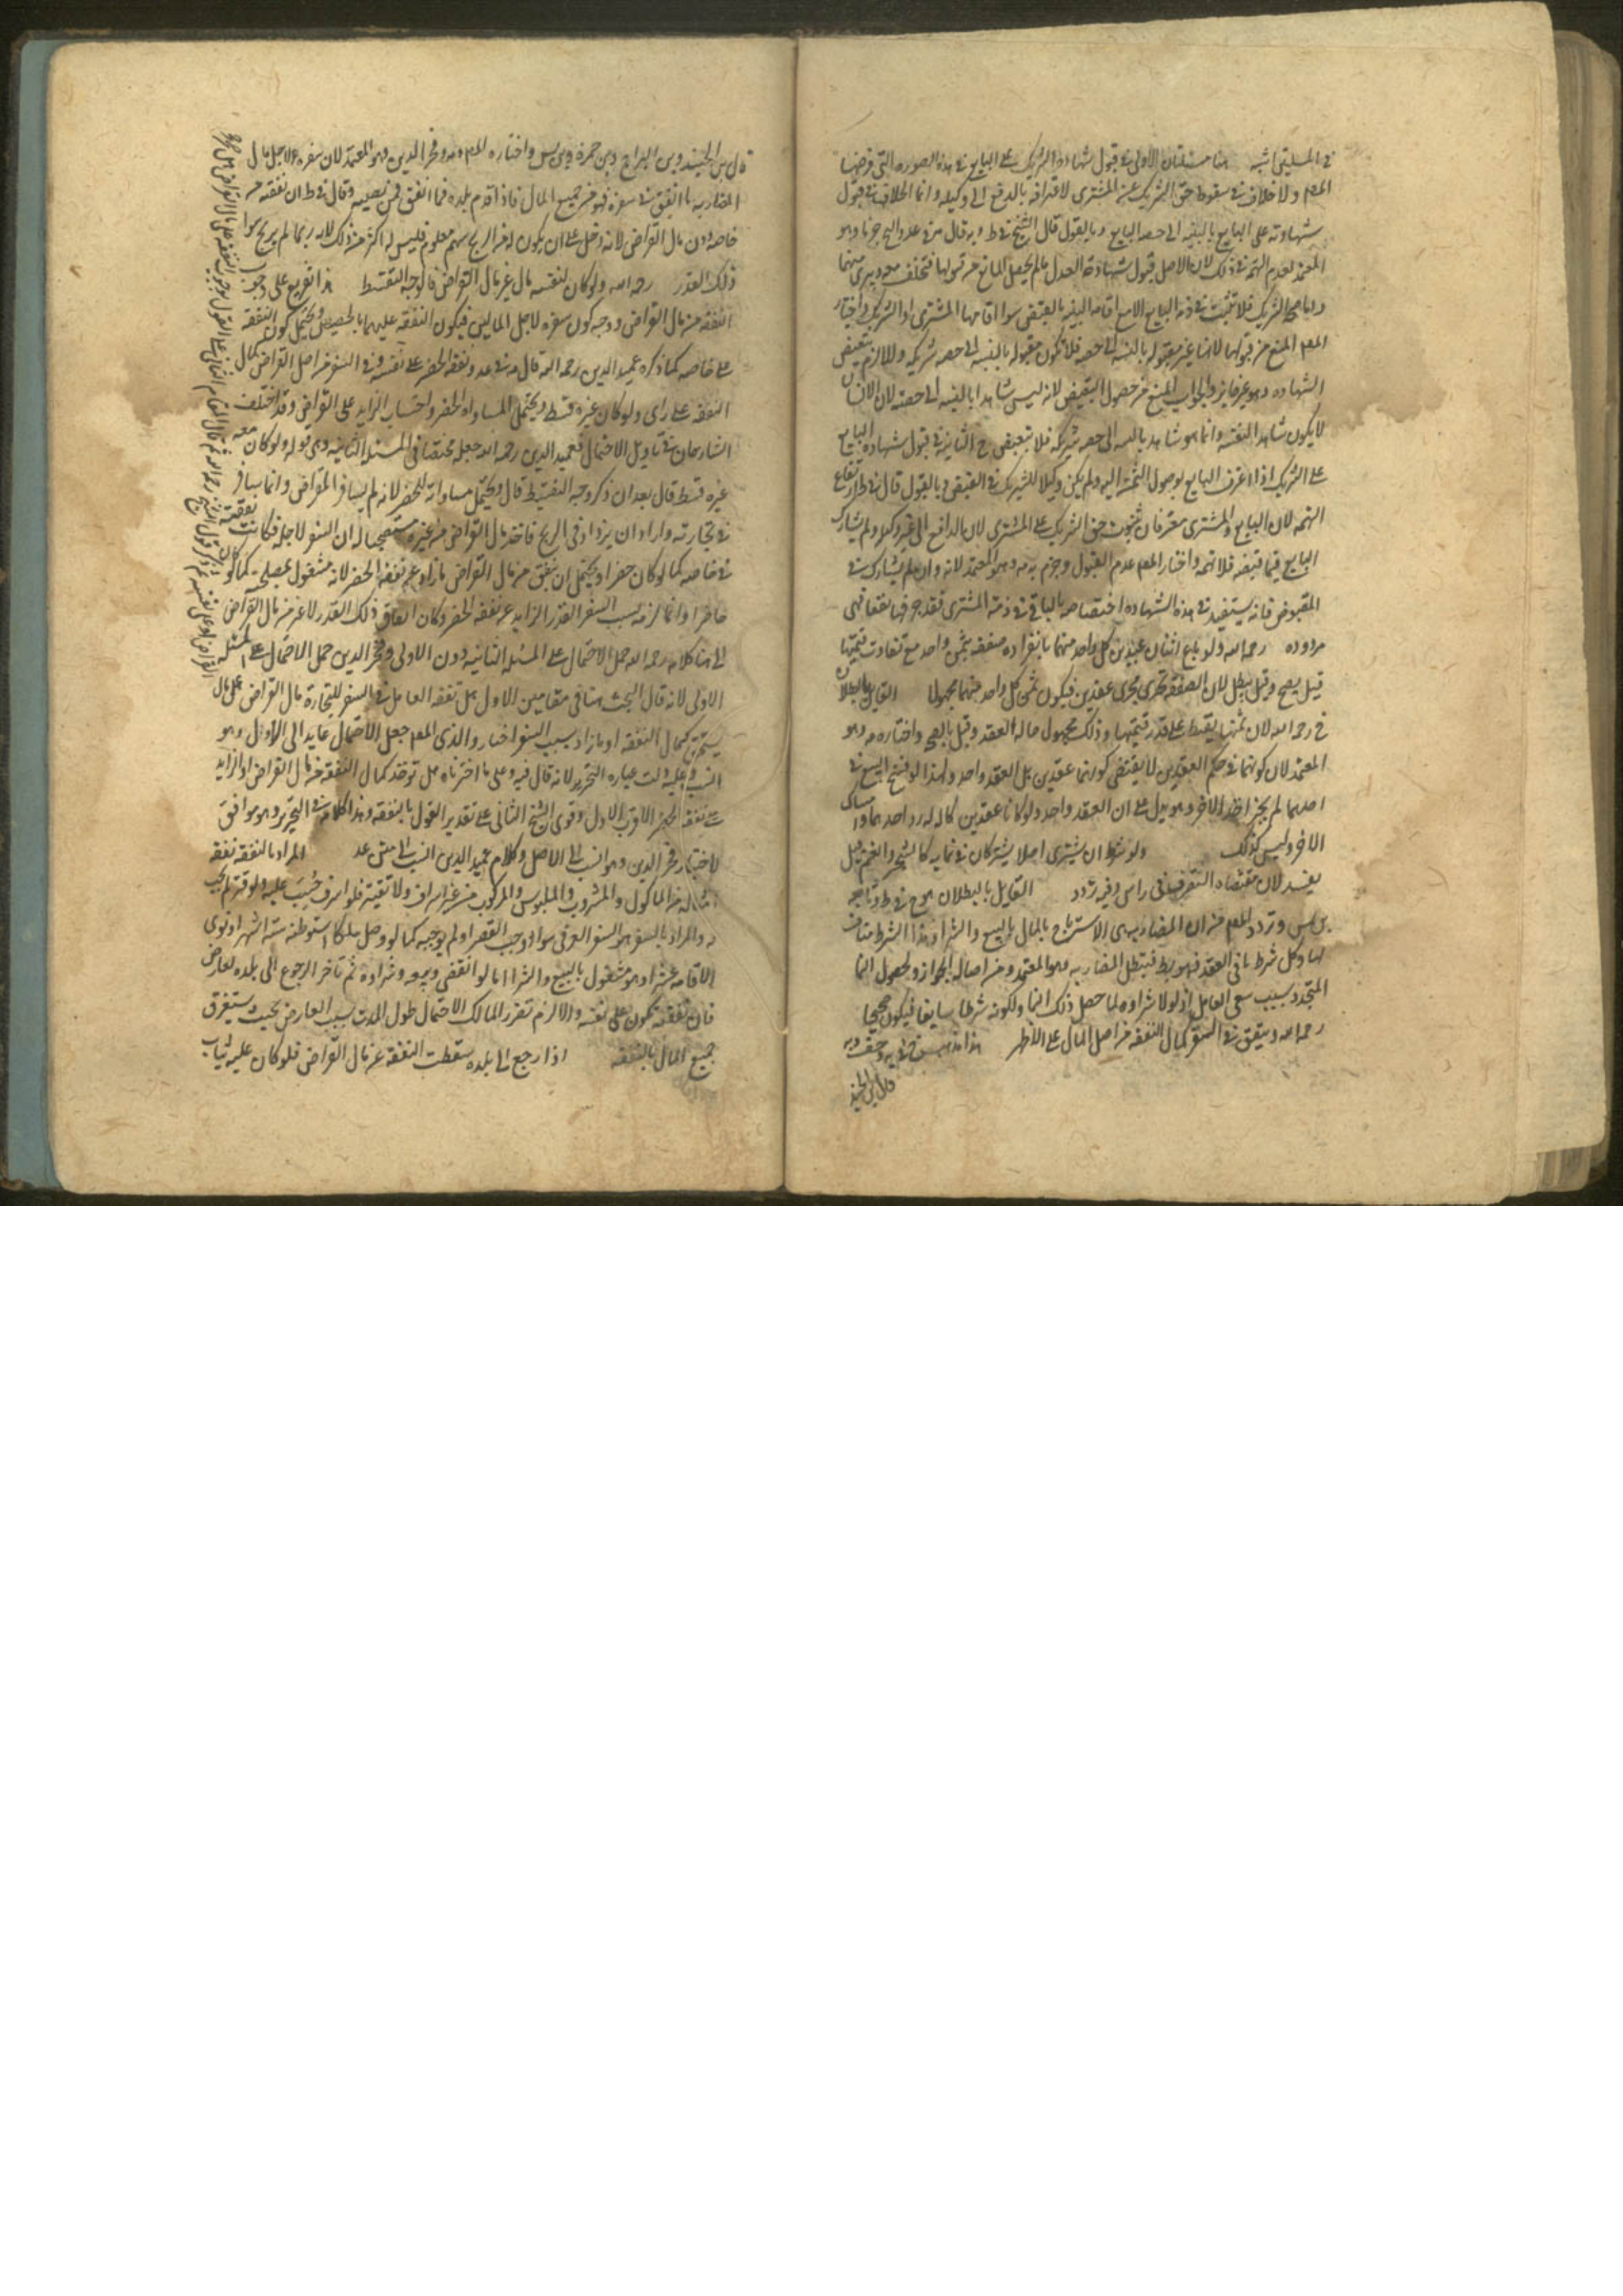 في المسئلتين شبه هنا مسئلتان الاولى في قبول شهادة الشريك على البايع في هذه الصوره التي فرضها
المص ولا خلاف في سقوط حق الشريك عن المشترى لاقراره بالدفع الى وكيله وانما الخلاف في قبول
شهادته على البايع بالنسبه الى حصه البايع وبالقبول قال الشيخ في ط وبه قال من في عد والتحرير هنا وهو
المعتمد لعدم التهمه في ذلك لان الاصل قبول شهادة العدل ما لم يحصل المانع من قبولها فتخلف معه ويبرى منهما
واما الشريك فلا تثبت في ذمه البايع الا مع اقامه البينه بالقبض سوا اقامها المشترى او الشريك واختار
المص المنع من قبولها لانها غير مقبوله بالنسبه الى حصه فلا تكون مقبوله بالنسبه الى حصه شريكه والا لزم تبعيض
الشهاده وهو غير جايز والجواب المنع من حصول التبعيض لانه ليس شاهدا بالنسبه الى حصته لان الانسان
لا يكون شاهدا لنفسه وانما هو شاهد بالنسبه الى حصه شريكه فلا تبعيض ح الثانيه في قبول شهاده البايع
على الشريك اذا اعترف البايع بوصول الثمن اليه ولم يكن وكيلا للشريك في القبض وبالقبول قال في ط لارتفاع
التهمه لان البايع والمشترى معترفان بثبوت حق الشريك على المشترى لان بالدافع الى غير وكيله ولم يشارك
البايع فيما قبضه فلا تهمه واختار المص عدم القبول وجزم به وهو المعتمد لانه وان لم يشارك في
المقبوض فانه يستفيد في هذه الشهاده اختصاصه بالباقى في ذمه المشترى فقد جر فيها نفعا فهى
مردوده رحمه الله ولو باع اثنان عبدين كل واحد منهما بانفراده صفقه بثمن واحد مع تفاوت قيمتها
قيل يصح وقيل يبطل لان الصفقه تجرى مجرى عقدين فيكون ثمن كل واحد منهما مجهولا القايل بالبطلان
رحمه الله لان ثمنها يقسط على قدر قيمتها وذلك مجهول حاله العقد وقيل بالصحه واختاره وهو
المعتمد لان كونهما في حكم العقدين لا يقتضى كونهما عقدين بل العقد واحد ولهذا لو فسخ البيع في
احدهما لم يجز اخذ الاخر وهو يدل على ان العقد واحد ولو كانا عقدين كان له رد احدهما وامساك
الاخر وليس كذلك ولو شرط ان يشترى اصلا يشتركان في نمايه كالشجر والغنم قيل
يفسد لان مقتضاه التصرف في راس وفيه تردد القايل بالبطلان هو في ط وتابعه
بن س وتردد المص من ان المضاربه هى الاسترباح بالمال بالبيع والشرا وهذا الشرط مناف
لها وكل شرط نافى العقد فهو باطل فتبطل المضاربه وهو المعتمد ومن اصاله الجواز ولحصول النما
المتجدد بسبب سعى العامل اذ لولا شراوه لما حصل ذلك النما ولكونه شرطا سايغا فيكون صحيحا
رحمه الله وينفق في السفر كمال النفقه من اصل المال على الاظهر هذا مذهب وبه
قال بن الجنيد
قال بن الجنيد وبن البراج وبن حمزه وبن س واختاره المص وفخر الدين وهو المعتمد لان سفره لاجل مال
المضاربه ما انفق في سفره فهو من جميع المال فاذا قدم بلده فما انفق فمن نصيبه وقال في ط ان نفقته من
خاصه دون مال القراض لانه دخل على ان يكون له من الربح سهم معلوم فليس له اكثر من ذلك لانه ربما لم يربح سوا
ذلك القدر رحمه الله ولو كان لنفسه مال غير مال القراض فالوجه التقسيط هذا تفريع على وجوب
النفقه من مال القراض ووجه كون سفره لاجل المالين فيكون النفقه عليهما بالحصص ويحتمل كون النفقه
على خاصه كما ذكره عميد الدين رحمه الله قال في عد ونفقه الحضر على نفسه وفي السفر من اصل القراض كمال
النفقه على راى ولو كان غيره قسط ويحتمل المساواه للحضر واحتساب الزايد على القراض وقد اختلف
الشارحان في تاويل الاحتمال فعميد الدين رحمه الله جعله مختصا في المسئله الثانيه وهى قوله ولو كان معه
غيره قسط قال بعد ان ذكر وجه التقسيط قال ويحتمل مساواته للحضر لانه لم يسافر للقراض وانما سافر
في تجارته واراد ان يزداد في الربح فاخذ مال القراض من غيره مستصحبا له ان السفر لاجله فكانت نفقته
في خاصه كما لو كان حضرا ويحتمل ان ينفق من مال القراض ما زاد عن نفقه الحضر لانه مشغول لمصلحته كما لو كان
حاضرا وانما لزمه بسبب السفر القدر الزايد عن نفقه الحضر وكان انفاق ذلك القدر لا غير من مال القراض
الى هنا كلامه رحمه الله حمل الاحتمال على المسئله الثانيه دون الاولى وفخر الدين حمل الاحتمال على المسئله
الاولى لانه قال البحث هنا في مقامين الاول هل نفقه العامل في السفر للتجارة بمال القراض على مال
كمال النفقه او ما زاد بسبب السفر اختار والذى المص جعل الاحتمال عايد الى الاول وهو
انسب وعليه دلت عباره التحرير لانه قال فيه وعلى ما اخترناه هل توخذ كمال النفقه من مال القراض او الزايد
على نفقه الحضر الاقرب الاول وقوى الشيخ الثانى على تقدير القول بالنفقه وهذا كلامه في التحرير وهو موافق
لاختيار فخر الدين وهو انسب الى الاصل وكلام عميد الدين انسب الى متن عد المراد بالنفقه نفقه
امثاله من الماكول والمشروب والملبوس والمركوب من غير اسراف ولا تقتير فلو اسرف حسب عليه ولو قتر لم يحسب
له والمراد بالسفر هو السفر العرفى سوا اوجب القصر او لم يوجبه كما لو وصل ملكا استوطنه سته اشهر او نوى
الاقامه عشرا وهو مشغول بالبيع والشرا اما لو انقضى بيعه وشراوه ثم تاخر الرجوع الى بلده لعارض
فان نفقته تكون على نفسه والا لزم تضرر المالك لاحتمال طول المدة بسبب العارض بحيث يستغرق
جميع المال بالنفقه اذا رجع الى بلده سقطت النفقه عن مال القراض فلو كان عليه ثياب